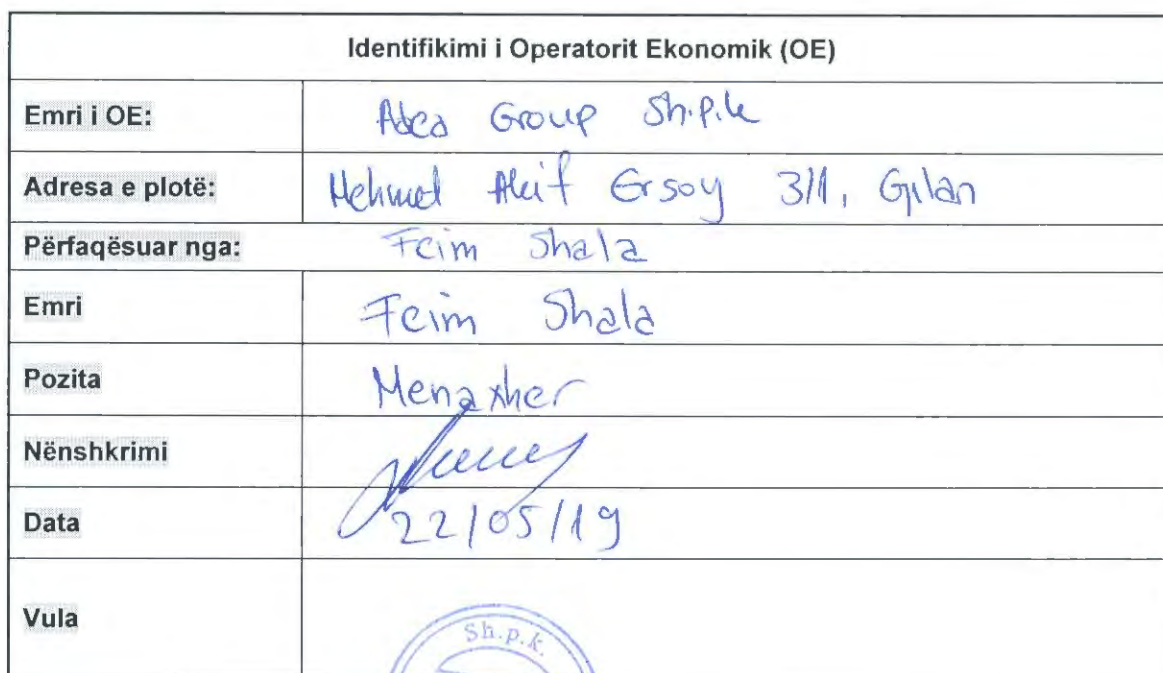 Identifikimi i Operatorit Ekonomik (OE)
Emri i OE: Group Sh.p.k
Adresa e plotë: Mehmet Akif Ersoy 3/1, Gjilan
Përfaqësuar nga: Feim Shala
Emri Feim Shala
Pozita Menaxher
Nënshkrimi
Data 22/05/19
Vula
Sh.p.k.